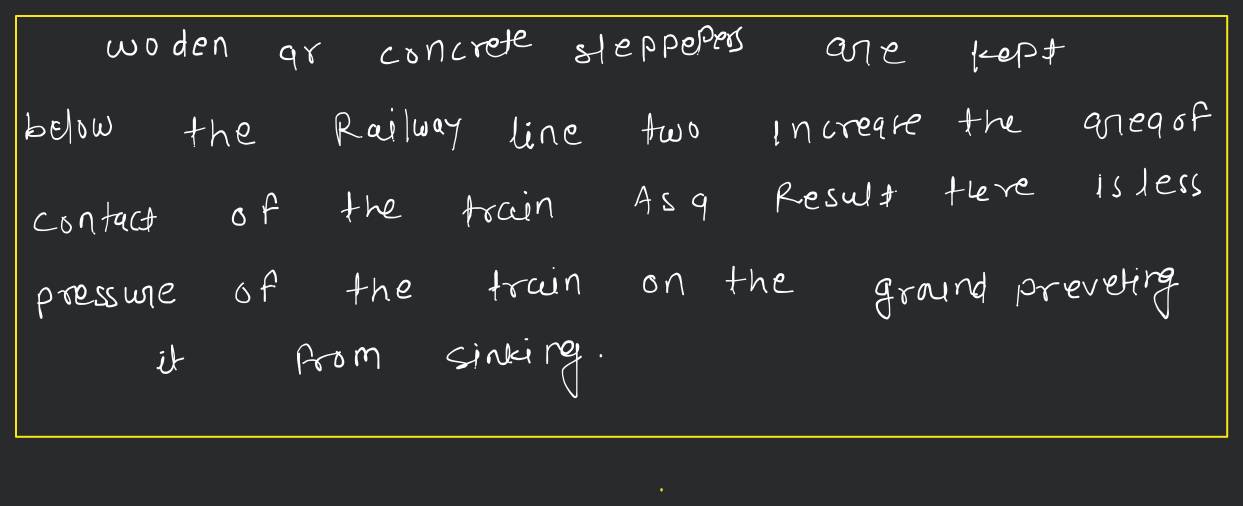 woden or concrete sleppepers are kept
below the Railway line two increase the area of
contact of the train As a Result there is less
pressure of the train on the ground preveting
it from sinking.